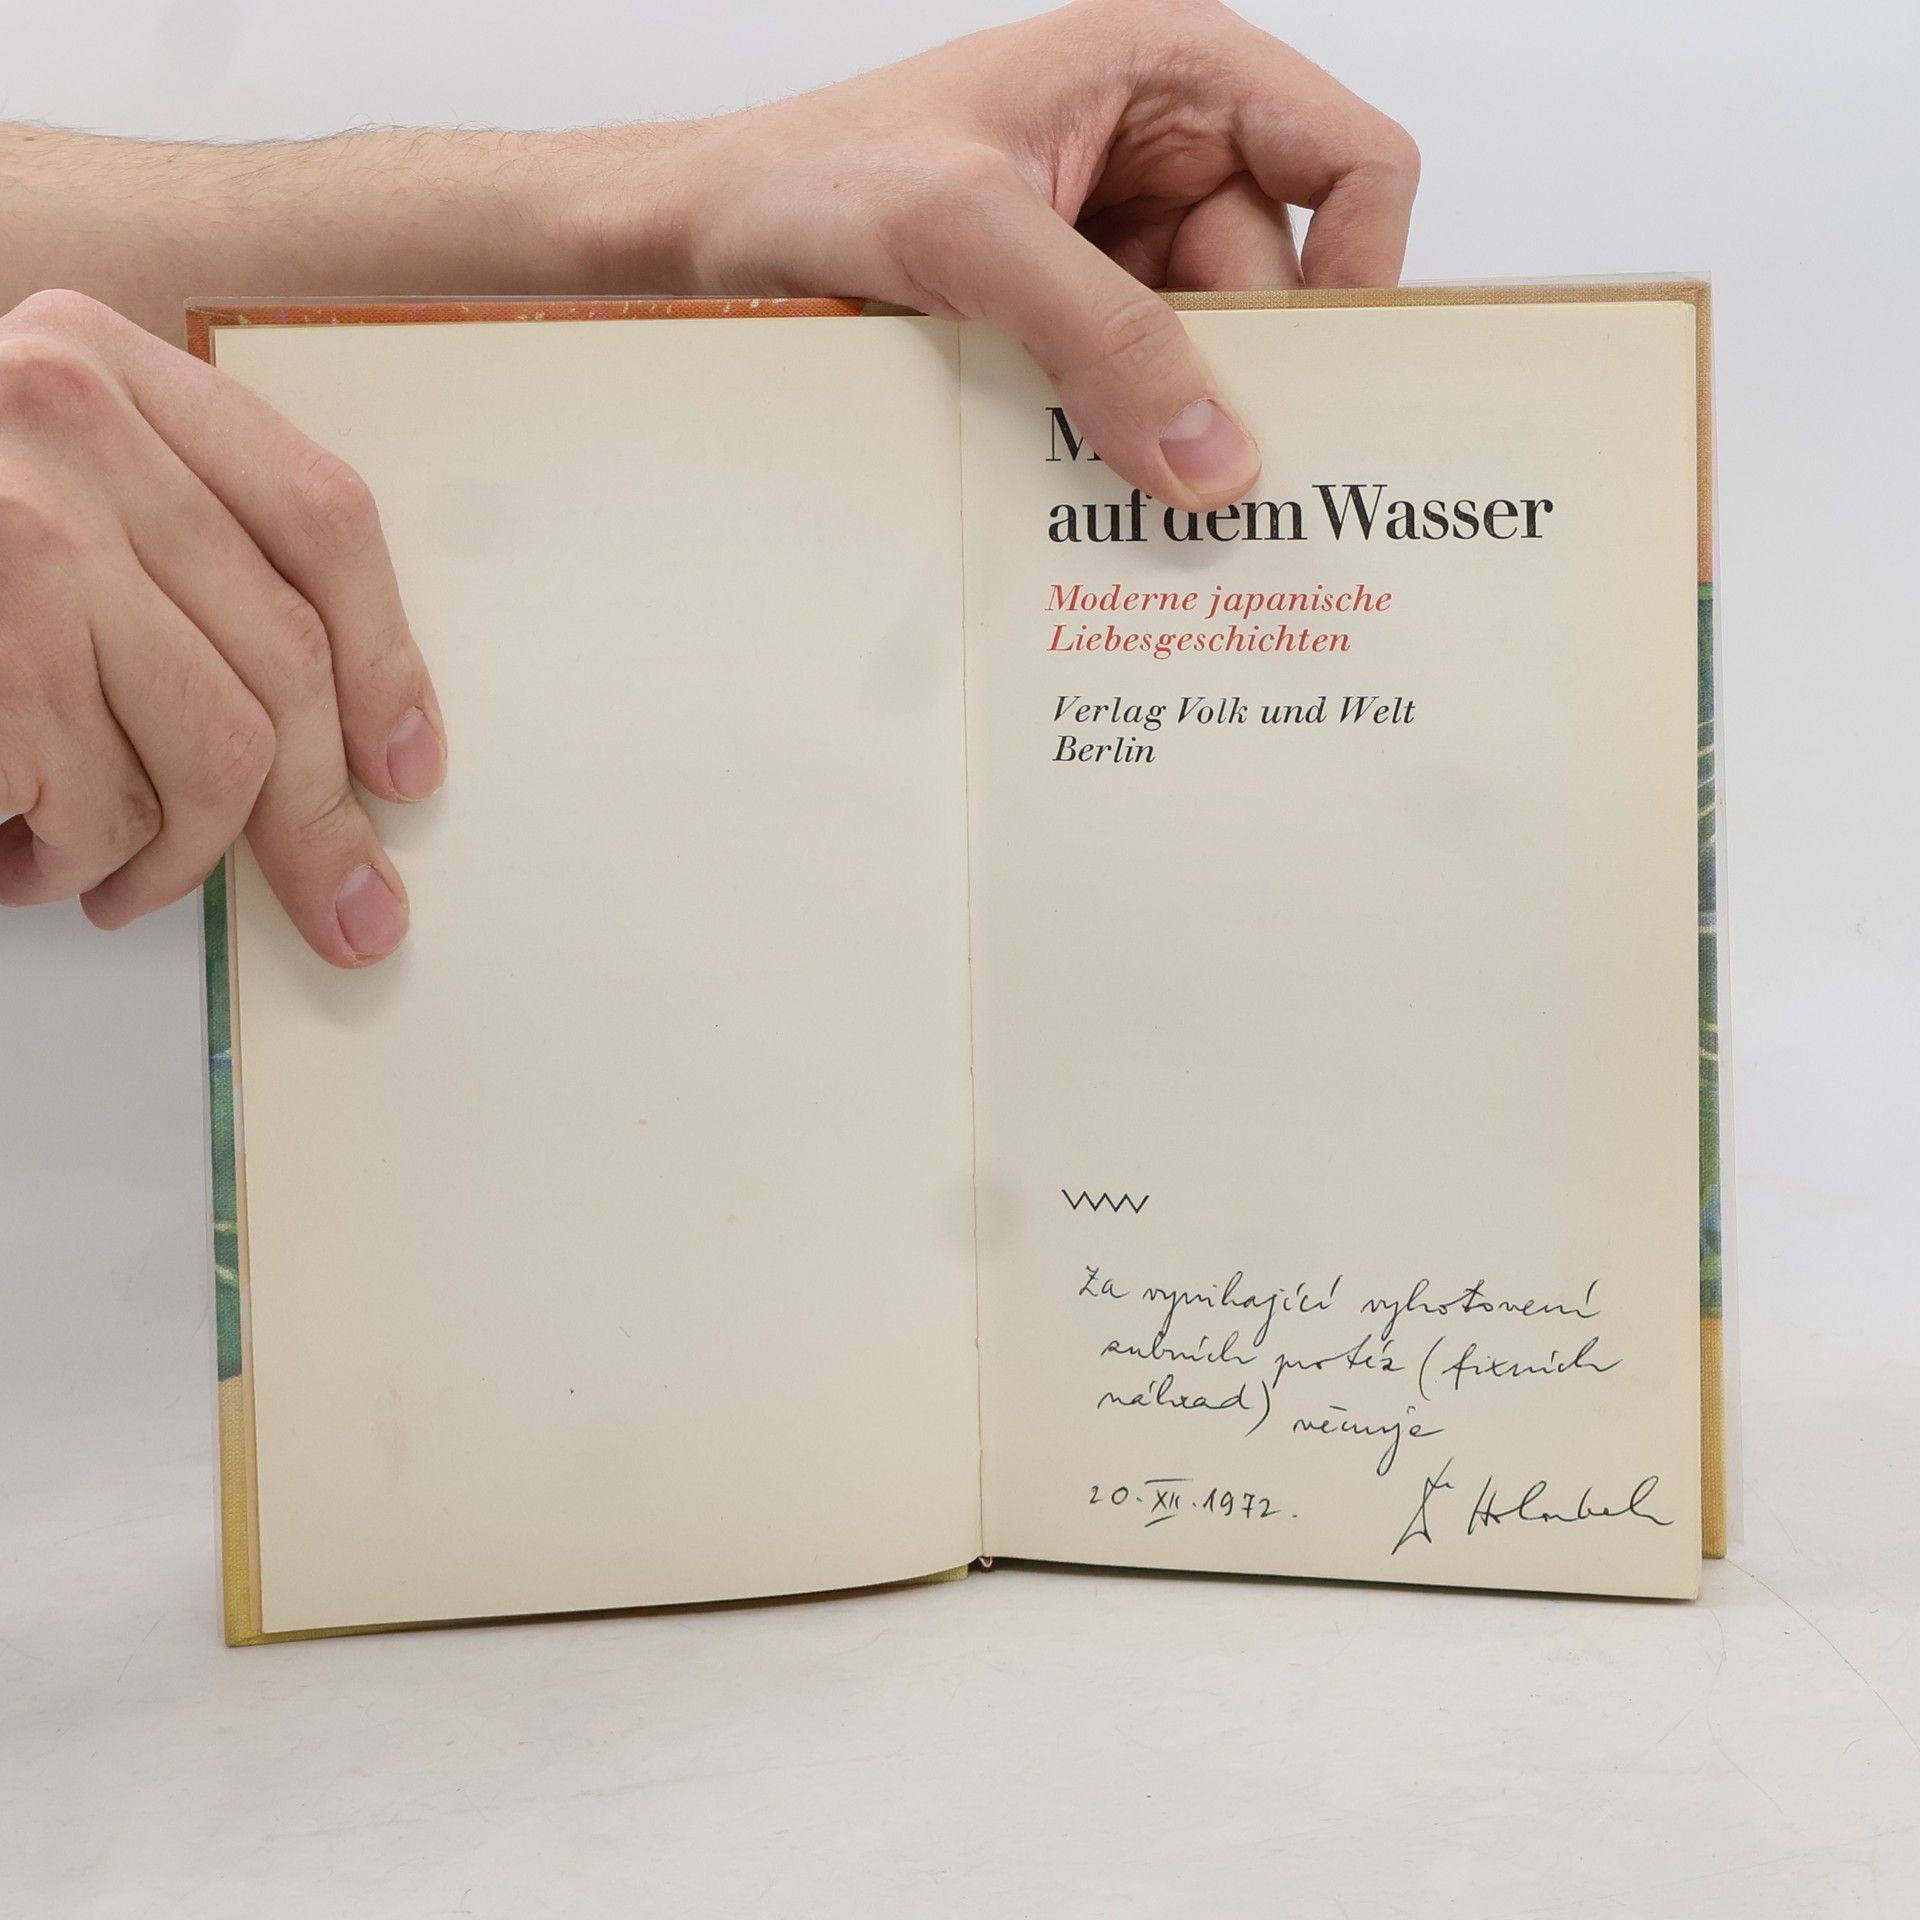 M
auf dem Wasser
Moderne japanische
Liebesgeschichten
Verlag Volk und Welt
Berlin
Za vynikající vyhotovení
zubních protéz (fixních
náhrad) věnuje
20.XII.1972.
Dr Holoubek